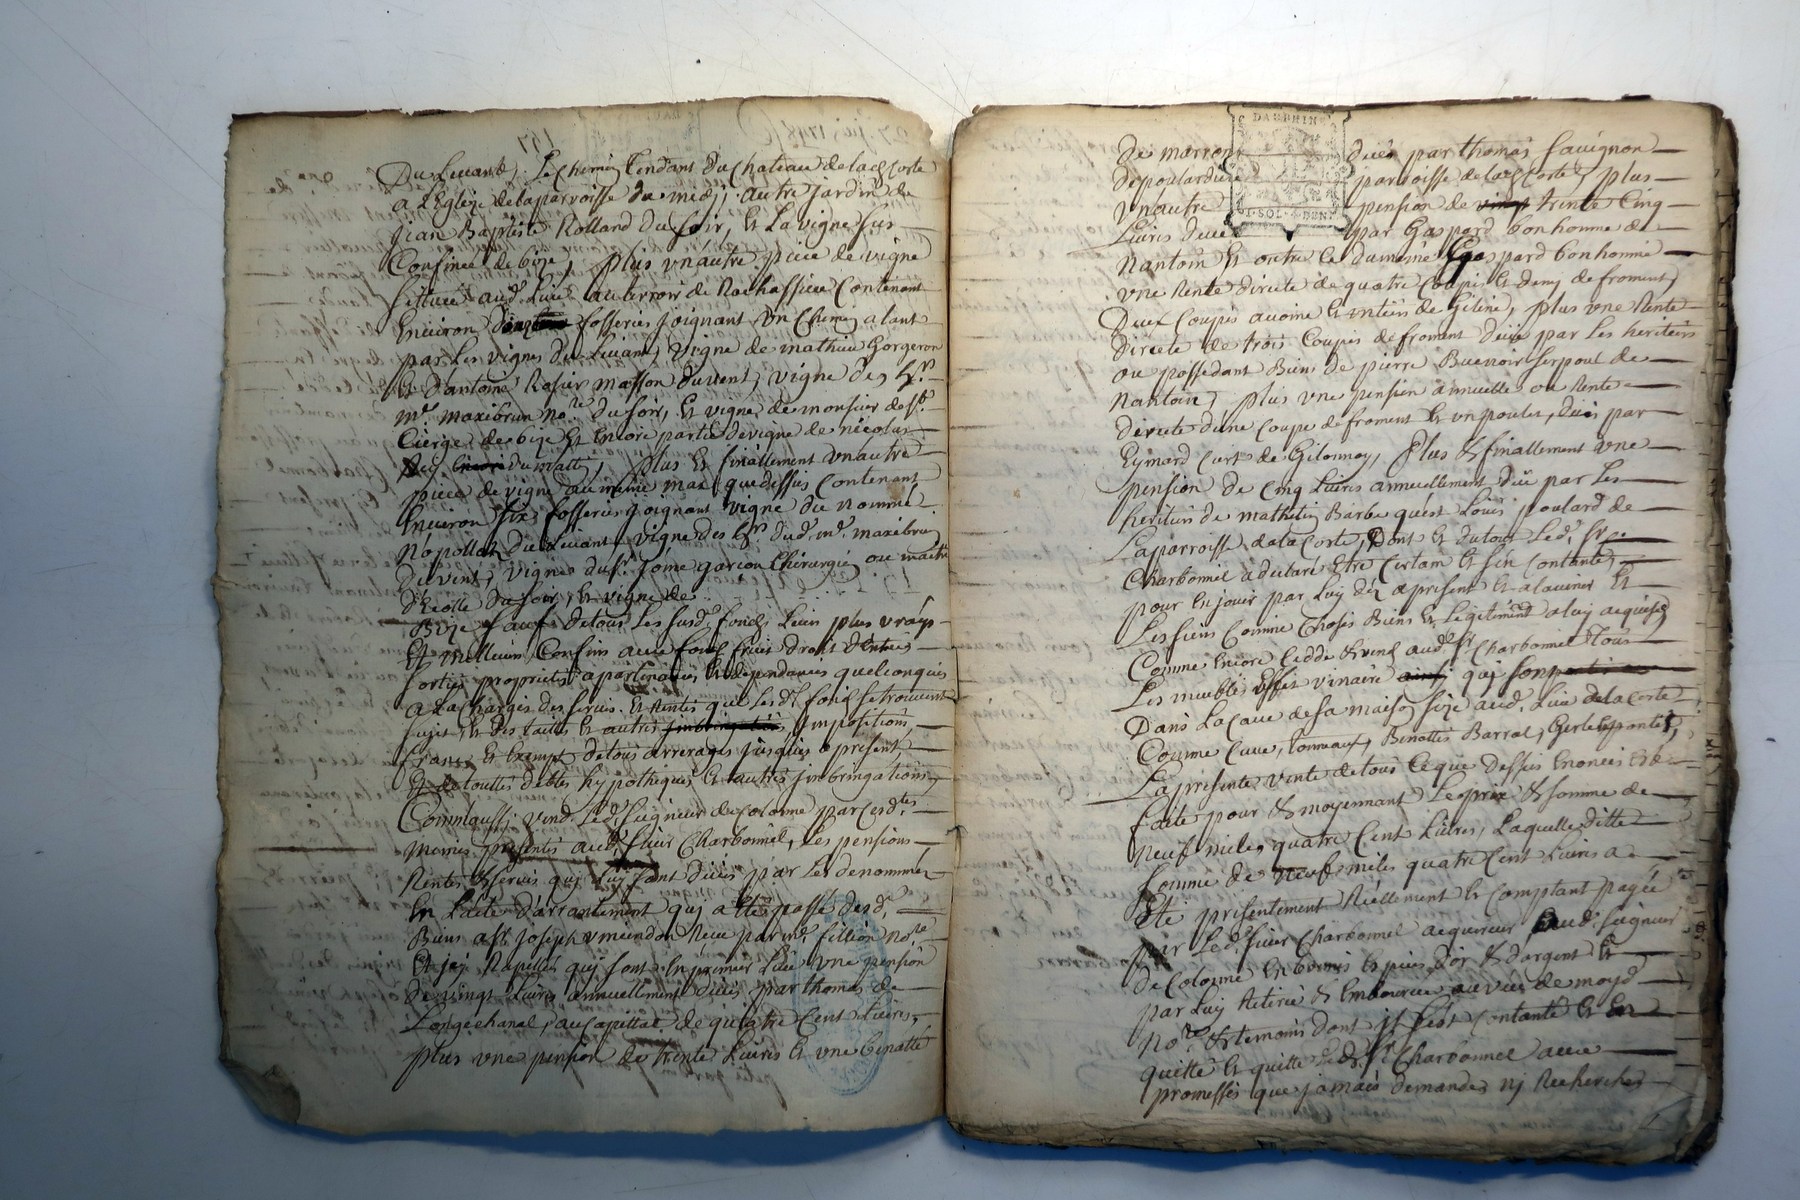 Du Levant, Le Chemin tendant du Chateau de lad Corte
a L'Eglize de la parroisse du midj, autre jardin de
Jean Baptiste Rolland du soir, Et La vigne sus
Confinée de bize, plus un autre piece de vigne
scittuée aud. Lieu au terroir de Rochassieu Contenant
Environ fosserées joignant un Chemin alant
par les vignes du Levant, vigne de mathieu Gorgeron
Et d'antoine Rosier masson du vent, vigne des hrs
me maxibrun nore du soir, Et vigne de monsieur de st
Cierge de bize Et Encore partie de vigne de nicolas
du matt, plus Et finallement un autre
piece de vigne au meme mas que dessus contenant
Environ six fosserées joignant vigne du nommé
Nopollat du Levant, vigne des hrs dud. me maxibrun
du vent, vigne du sr jome garcon Chirurgien ou maitre
d'Ecolle du soir, Et vigne de
Bize sauf de tous Les susd. fonds Leurs plus vrays
Et melleurs Confins avec fonds fruits droits d'Entrées
sorties proprietés apartenances Et dependances quelconques
a La Charges des servis Et Rentes que lesd. fonds se trouveront
sujets Et des tailles Et autres Impositions,
francs Et Exempts de tous arrerages jusques a present
Et de touttes debtes hypotheques Et autres jmbringations,
Comm'aussy vend Led. seigneur de Colonne par cesd.tes
memes presentes aud. sieur Charbonnel, Les pensions
Rentes & servis quj Luy sont dües par Les denommés
En L'acte d'arrantement quj a Eté passé desd.
Biens a sr joseph vmeindon Receu par me fillion nore
Et jcj Rapellés quj sont En premier Lieu une pension
de vingt Livres annuellement düe par thomas de
Longechanal, au Capittal de quatre Cent Livres,
plus une pension de trente Livres Et une benatte
DAUPHINE
1. SOL. 4. DEN.
de marrons düe par thomas sauvignon
Depoulardiere parroisse de lad Corte, plus
un autre pension de trente Cinq
Livres düe par Gaspard bonhomme de
Nantoin Et outre Ce du meme Gaspard bonhomme
une Rente directe de quatre Coupes Et demj de froment
Deux Coupes avoine Et un tiers de Geline, plus une Rente
directe de trois Coupes de froment düe par Les heritiers
ou possedant Biens de pierre Buenoir serpoul de
Nantoin, plus une pension annuelle ou Rente
directe d'une Coupe de froment Et un poulet, düe par
Eymard Curt de Gilonnay, Plus & finallement une
pension de Cinq Livres annuellement düe par Les
heritiers de mathelin Barbe qu'est Louis poulard de
La parroisse de la Corte, Dont Et du tout Led. sr
Charbonnel a declaré Etre Certain Et s'en Contanter
pour En jouir par Luy dez a present Et a lavenir Et
Les siens Comme Choses Biens Et Legitement a luy acquises
Comme Encore Cedde & vend aud. sr Charbonnel Tous
Les meubles Effets vinaire quj sont
Dans La Cave de sa maison sise aud. Lieu de la Corte
Comme Cuve, tonneaux, Benottes Barral, Gerle
La presente vente de tous Ce que Dessus Enoncés Est
faite pour & moyennant Le prix & somme de
neuf milles quatre Cent Livres, Laquelle ditte
somme de neuf milles quatre Cent Livres a
Eté presentement Réellement Et Comptant payée
par Led. sieur Charbonnel acquereur aud. seigneur
de Colonne En bonnes Especes d'or & d'argent Et
par Luy Retirée & Emboursée au veu de moyd
nore & temoins dont jl s'est Contanté Et En
quitte Et quitte Led. sr Charbonnel avec
promesses que jamais demandes nj Recherches